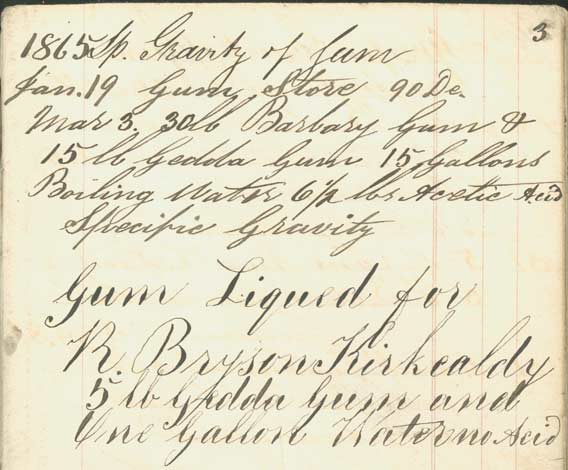 3
1865 Sp. Gravity of Gum
Jan. 19 Gum Store 90 De.
Mar 3. 30 lb Barbary Gum &
15 lb Gedda Gum 15 Gallons
Boiling Water 6½ lbs Acetic Acid
Specific Gravity
Gum Liqued for
R. Bryson Kirkcaldy
5 lb Gedda Gum and
One Gallon Water no Acid